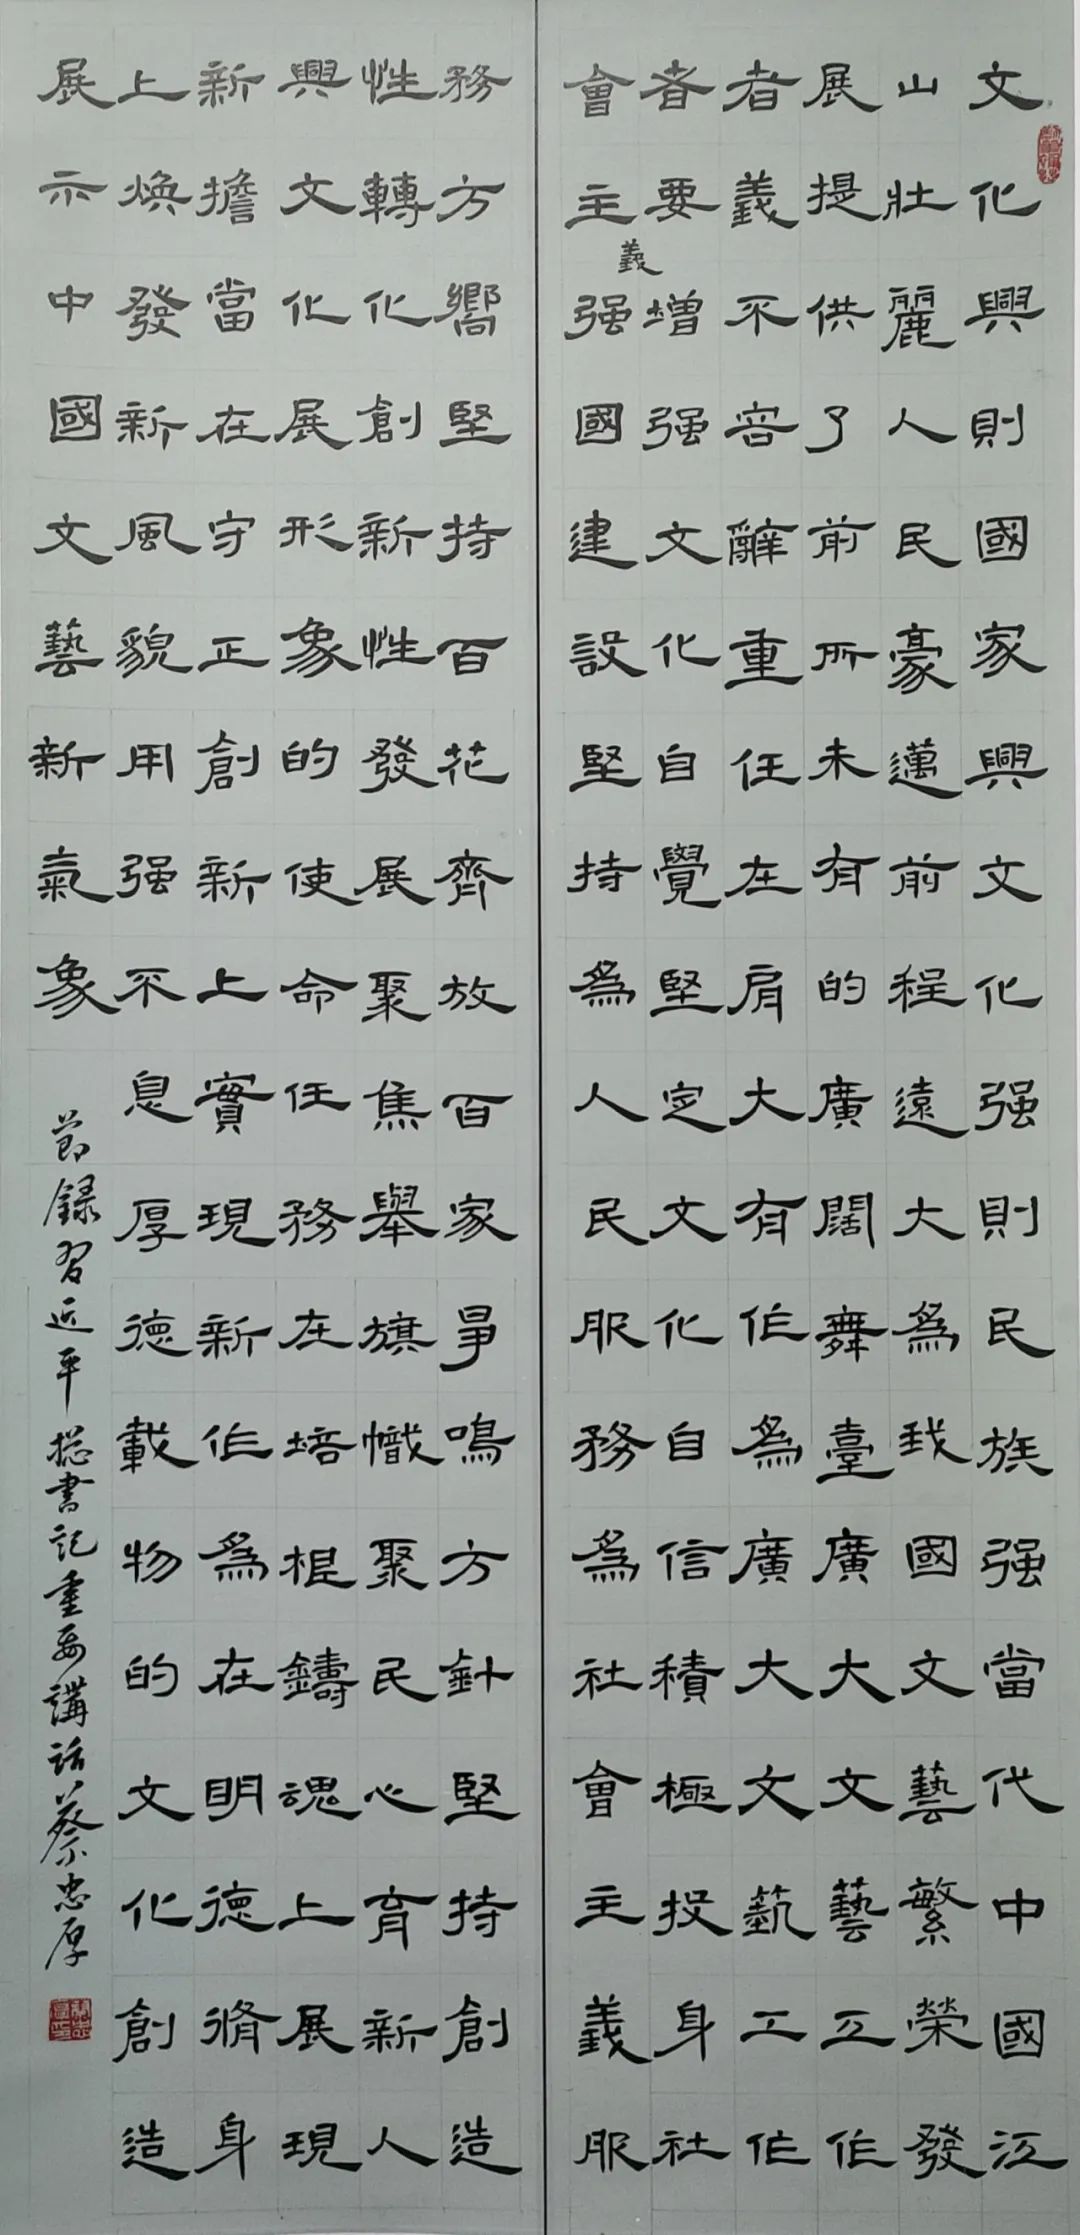 文化興則國家興文化强則民族强當代中國江
山壯麗人民豪邁前程遠大爲我國文藝繁榮發
展提供了前所未有的廣闊舞臺廣大文藝工作
者義不容辭重任在肩大有作爲廣大文蓺工作
者要增强文化自覺堅定文化自信積極投身社
會主義强國建設堅持爲人民服務爲社會主義服
務方嚮堅持百花齊放百家爭鳴方針堅持創造
性轉化創新性發展聚焦舉旗幟聚民心育新人
興文化展形象的使命任務在培根鑄魂上展現
新擔當在守正創新上實現新作爲在明德脩身
上煥發新風貌用强不息厚德載物的文化創造
展示中國文藝新氣象
節録習近平總書記重要講話蔡忠厚